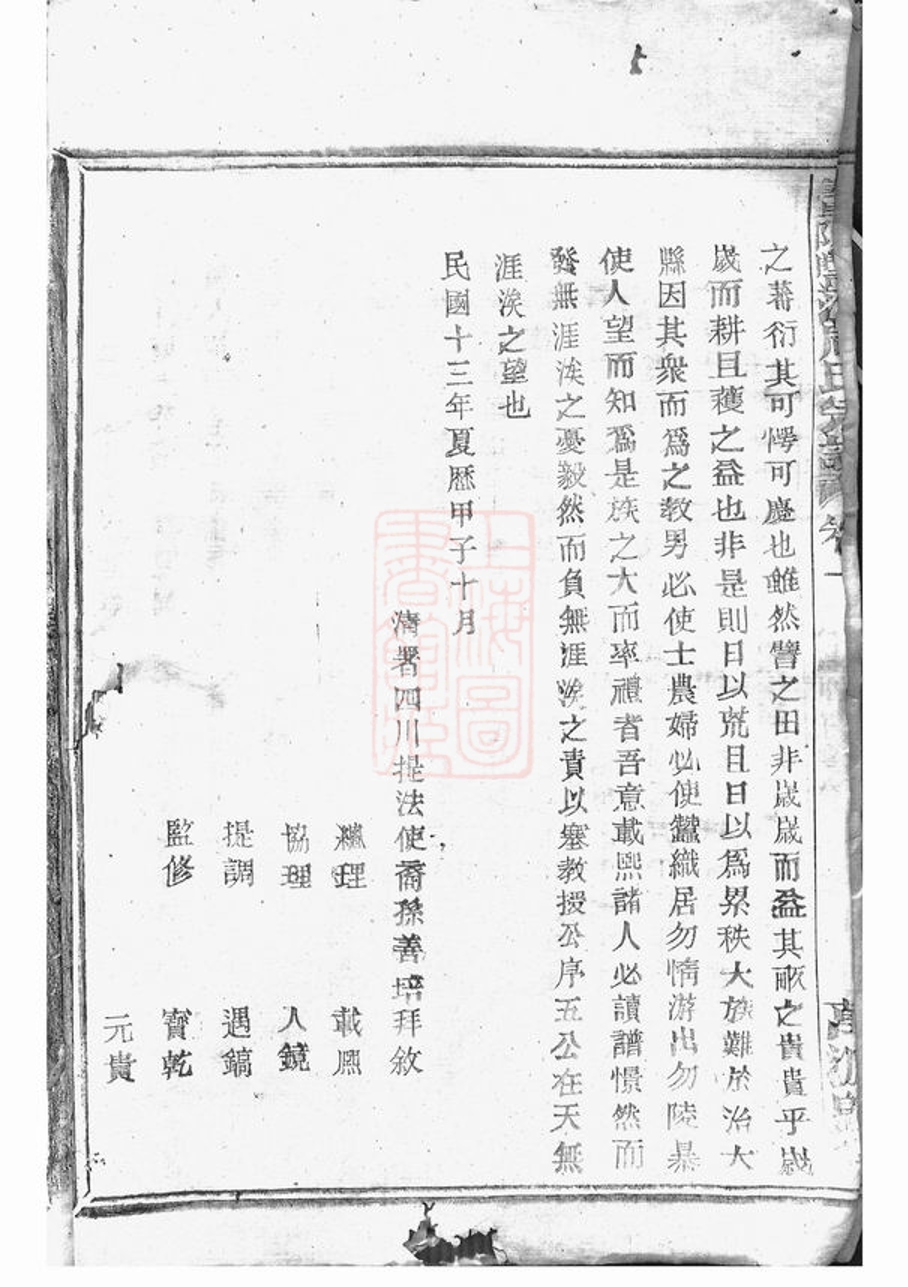 之蕃衍其可愕可慶也雖然譬之田非歲歲而益其畝之貴貴乎歲
歲而耕且穫之益也非是則日以荒且日以爲累秩大族難於治大
縣因其衆而爲之教男必使士農婦必使蠶織居勿惰游出勿陵暴
使人望而知爲是族之大而率禮者吾意載熙諸人必讀譜憬然而
發無涯涘之憂毅然而負無涯涘之責以塞教授公序五公在天無
涯涘之望也
民國十三年夏歷甲子十月
清署四川提法使裔孫善培拜敘
總理 載熙
協理 人鏡
提調 遇鎬
監修 寶乾
元貴
上海圖書館藏